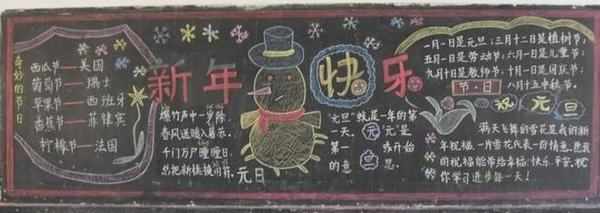 奇妙的节日
西瓜节——美国
葡萄节——瑞士
苹果节——西班牙
香蕉节——菲律宾
柠檬节——法国
新年快乐
爆竹声中一岁除
春风送暖入屠苏.
千门万户曈曈日.
总把新桃换旧符.
元日
"元旦"就是一年的第
一天.
"元"是
第一
开始
的意思.
一月一日是元旦;三月十二日是植树节
五月一日是劳动节;六月一日是儿童节
九月十日是教师节;十月一日是国庆节
节·日
八月十五中秋节
元旦
满天飞舞的雪花是我的新
年祝福.一片雪花代表一份情意.愿我
的祝福能带给幸福!快乐.平安.祝
你学习进步每一天!